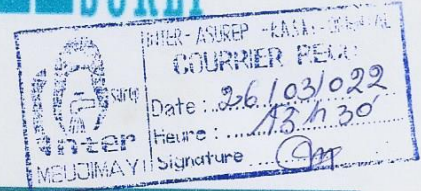 INTER - ASUREP - KASAI - ORIENTAL
COURRIER REÇU
Date : 26/03/022
Heure : 13h30'
Signature
inter
MBUJIMAYI